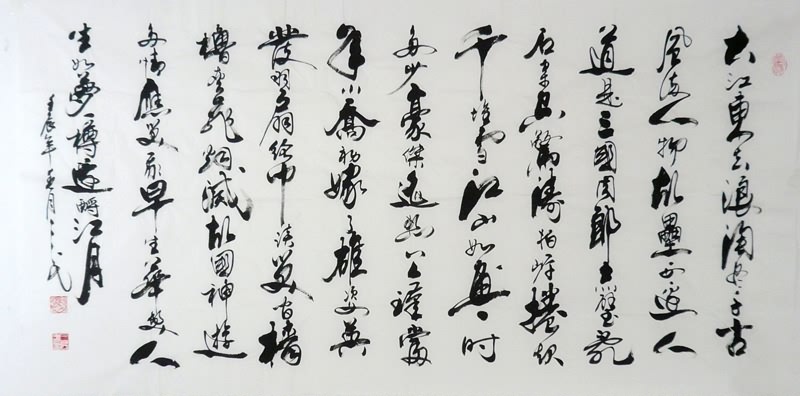 大江東去浪淘盡千古
風流人物故壘西邊人
道是三國周郎赤壁亂
石穿空驚濤拍岸捲起
千堆雪江山如畫一時
多少豪傑遙想公瑾當
年小喬初嫁了雄姿英
發羽扇綸巾談笑間檣
櫓灰飛烟滅故國神遊
多情應笑我早生華髮人
生如夢一樽還酹江月
壬辰年